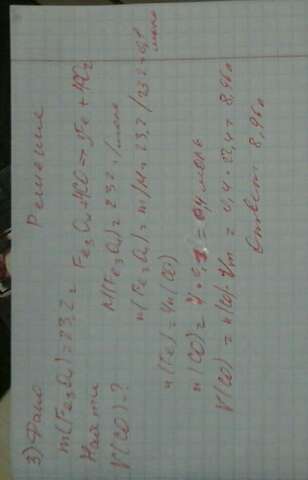 3) Дано
Решение
m(Fe3O4)=23,2г
Найти
V(CO)-?
Fe3O4+4CO=>3Fe+4CO2
M(Fe3O4)=232г/моль
n(Fe3O4)=m/M=23,2/232=0,1
моль
n(Fe)=4n(CO)
n(CO)=4*0,1=0,4моль
V(CO)=n(CO)*Vm=0,4*22,4=8,96л
Ответ: 8,96л